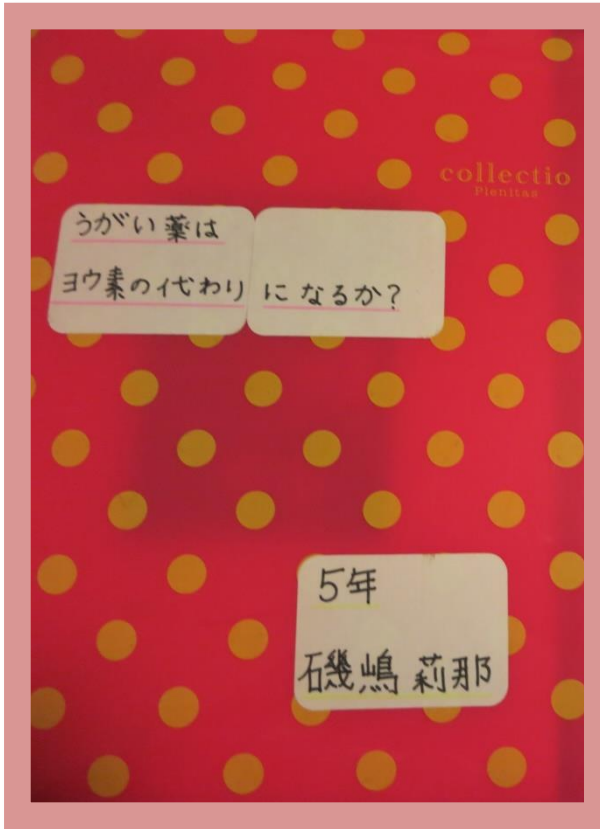 collectio
Plenitas
うがい薬は
ヨウ素の代わりになるか?
5年
磯嶋 莉那